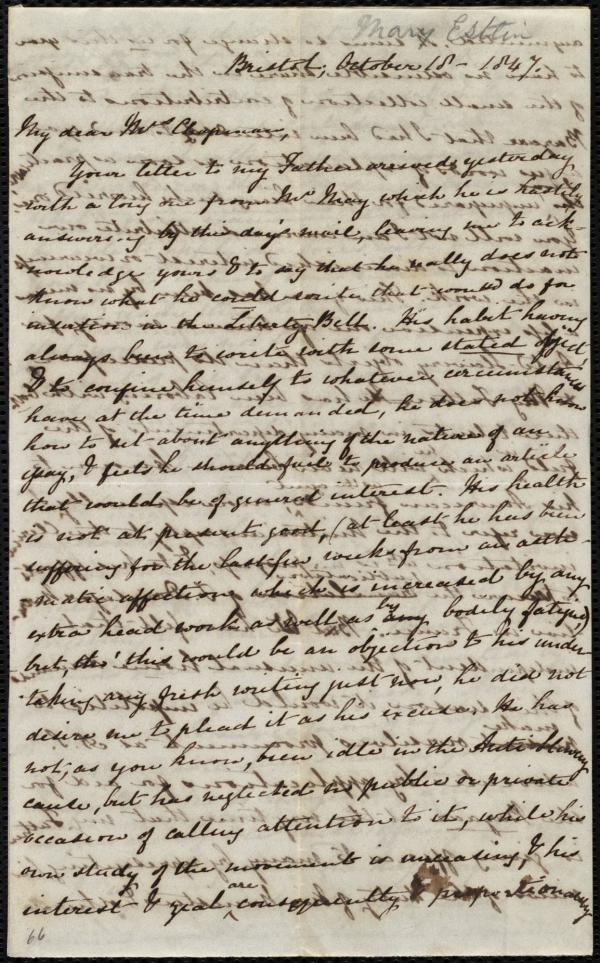 Mary Estlin
Bristol, October 18 - 1847.
My dear Mrs. Chapman,
Your letter to my Father arrived yesterday
with a long one from Mr. May which he is hastily
answering by this day's mail, leaving me to ack-
nowledge yours & to say that he really does not
know what he could write that would do for
insertion in the Liberty Bell. His habit having
always been to write with some stated object,
& to confine himself to whatever circumstances
have at the time demanded, he does not know
how to set about anything of the nature of an
essay, & feels he should fail to produce an article
that would be of general interest. His health
is not at present good, (at least he has been
suffering for the last few weeks from an asth-
matic affection which is increased by any
extra head work as well as by any bodily fatigue)
but, tho' this would be an objection to his under-
taking any fresh writing just now, he did not
desire me to plead it as his excuse. He has
not, as you know, been idle in the Anti-Slavery
cause, but has neglected no public or private
occasion of calling attention to it, while his
own study of the movement is unceasing, & his
interest & zeal are consequently proportionably
66